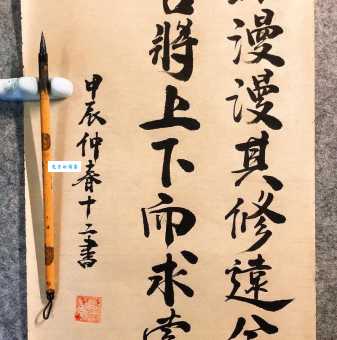 漫漫其修遠兮
將上下而求索
甲辰仲春十二書